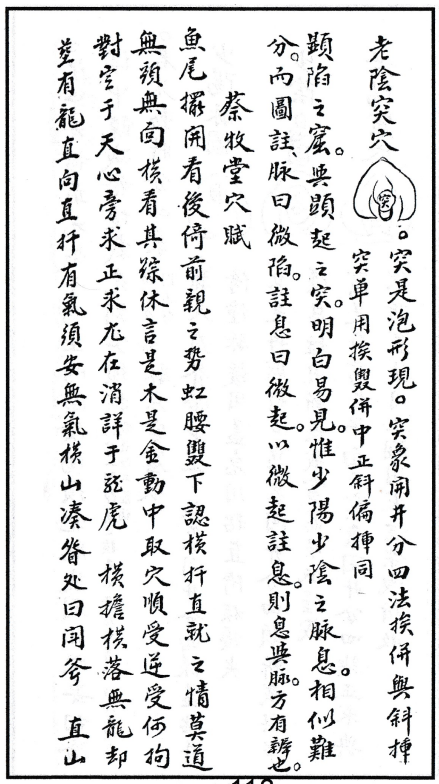 老陰突穴 突 。突是泡形現。突象開井分四法挨併與斜揷
突單用挨雙併中正斜偏揷同
顯陷之窟。與顯起之突。明白易見。惟少陽少陰之脉息。相似難
分。而圖註脉曰微陷。註息曰微起。以微起註息。則息與脉。方有辨也。
蔡牧堂穴賦
魚尾擺開看後倚前親之勢虹腰雙下認橫扦直就之情莫道
無頭無面橫看其踪休言是木是金動中取穴順受逆受何拘
對定于天心旁求正求尤在消詳于龍虎 橫擔橫落無龍却
葬有龍直向直扦有氣須安無氣橫山凑脊处曰開斧 直山
118